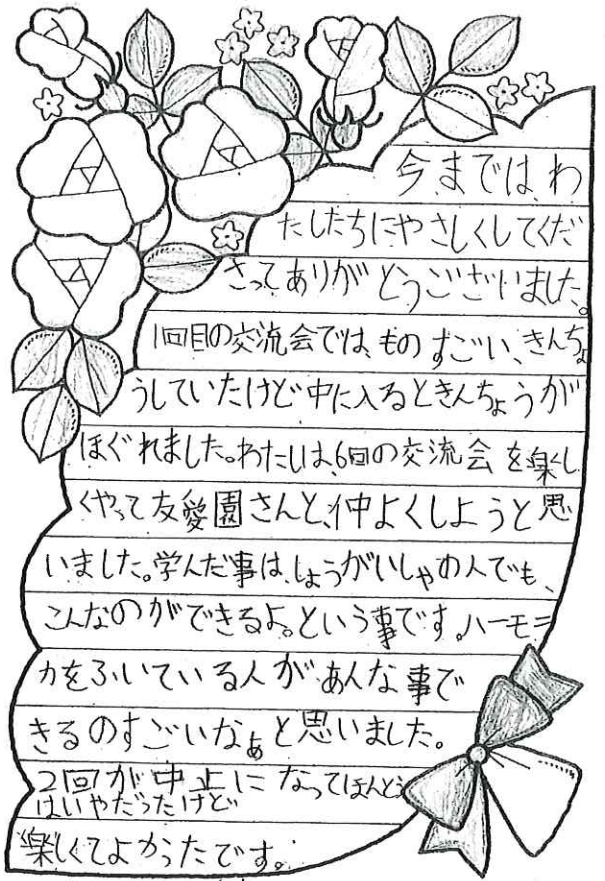 今までは、わ
たしたちにやさしくしてくだ
さってありがとうございました。
1回目の交流会では、ものすごい、きんちょ
うしていたけど中に入るときんちょうが
ほぐれました。わたしは、6回の交流会を楽し
くやって友愛園さんと、仲よくしようと思
いました。学んだ事は、しょうがいしゃの人でも、
こんなのができるよ。という事です。ハーモニ
カをふいている人があんな事で
きるのすごいなぁと思いました。
2回が中止になってほんとう
はいやだったけど
楽しくてよかったです。